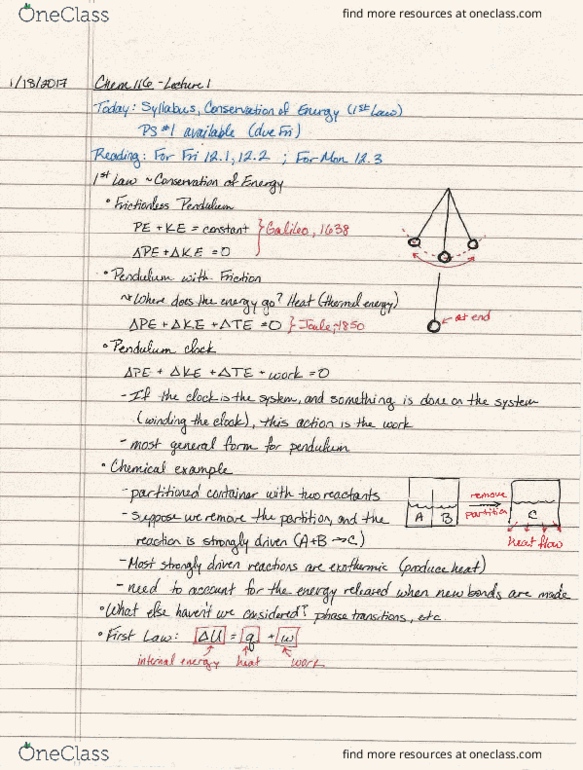 OneClass
find more resources at oneclass.com
1/18/2017 Chem 116 - Lecture 1
Today: Syllabus, Conservation of Energy (1st Law)
PS #1 available (due Fri)
Reading: For Fri 12.1, 12.2 ; For Mon 12.3
1st Law ~ Conservation of Energy
• Frictionless Pendulum
PE + KE = constant } Galileo, 1638
ΔPE + ΔKE = 0
• Pendulum with Friction
~Where does the energy go? Heat (thermal energy)
ΔPE + ΔKE + ΔTE = 0 } Joule, ~1850
at end
• Pendulum clock
ΔPE + ΔKE + ΔTE + work = 0
- If the clock is the system, and something is done on the system
(winding the clock), this action is the work
- most general form for pendulum
• Chemical example
- partitioned container with two reactants
- suppose we remove the partition, and the
reaction is strongly driven (A+B → C)
A B remove partition C
heat flow
- Most strongly driven reactions are exothermic (produce heat)
- need to account for the energy released when new bonds are made
• What else haven't we considered? phase transitions, etc.
• First Law: ΔU = q + w
internal energy heat work
OneClass
find more resources at oneclass.com